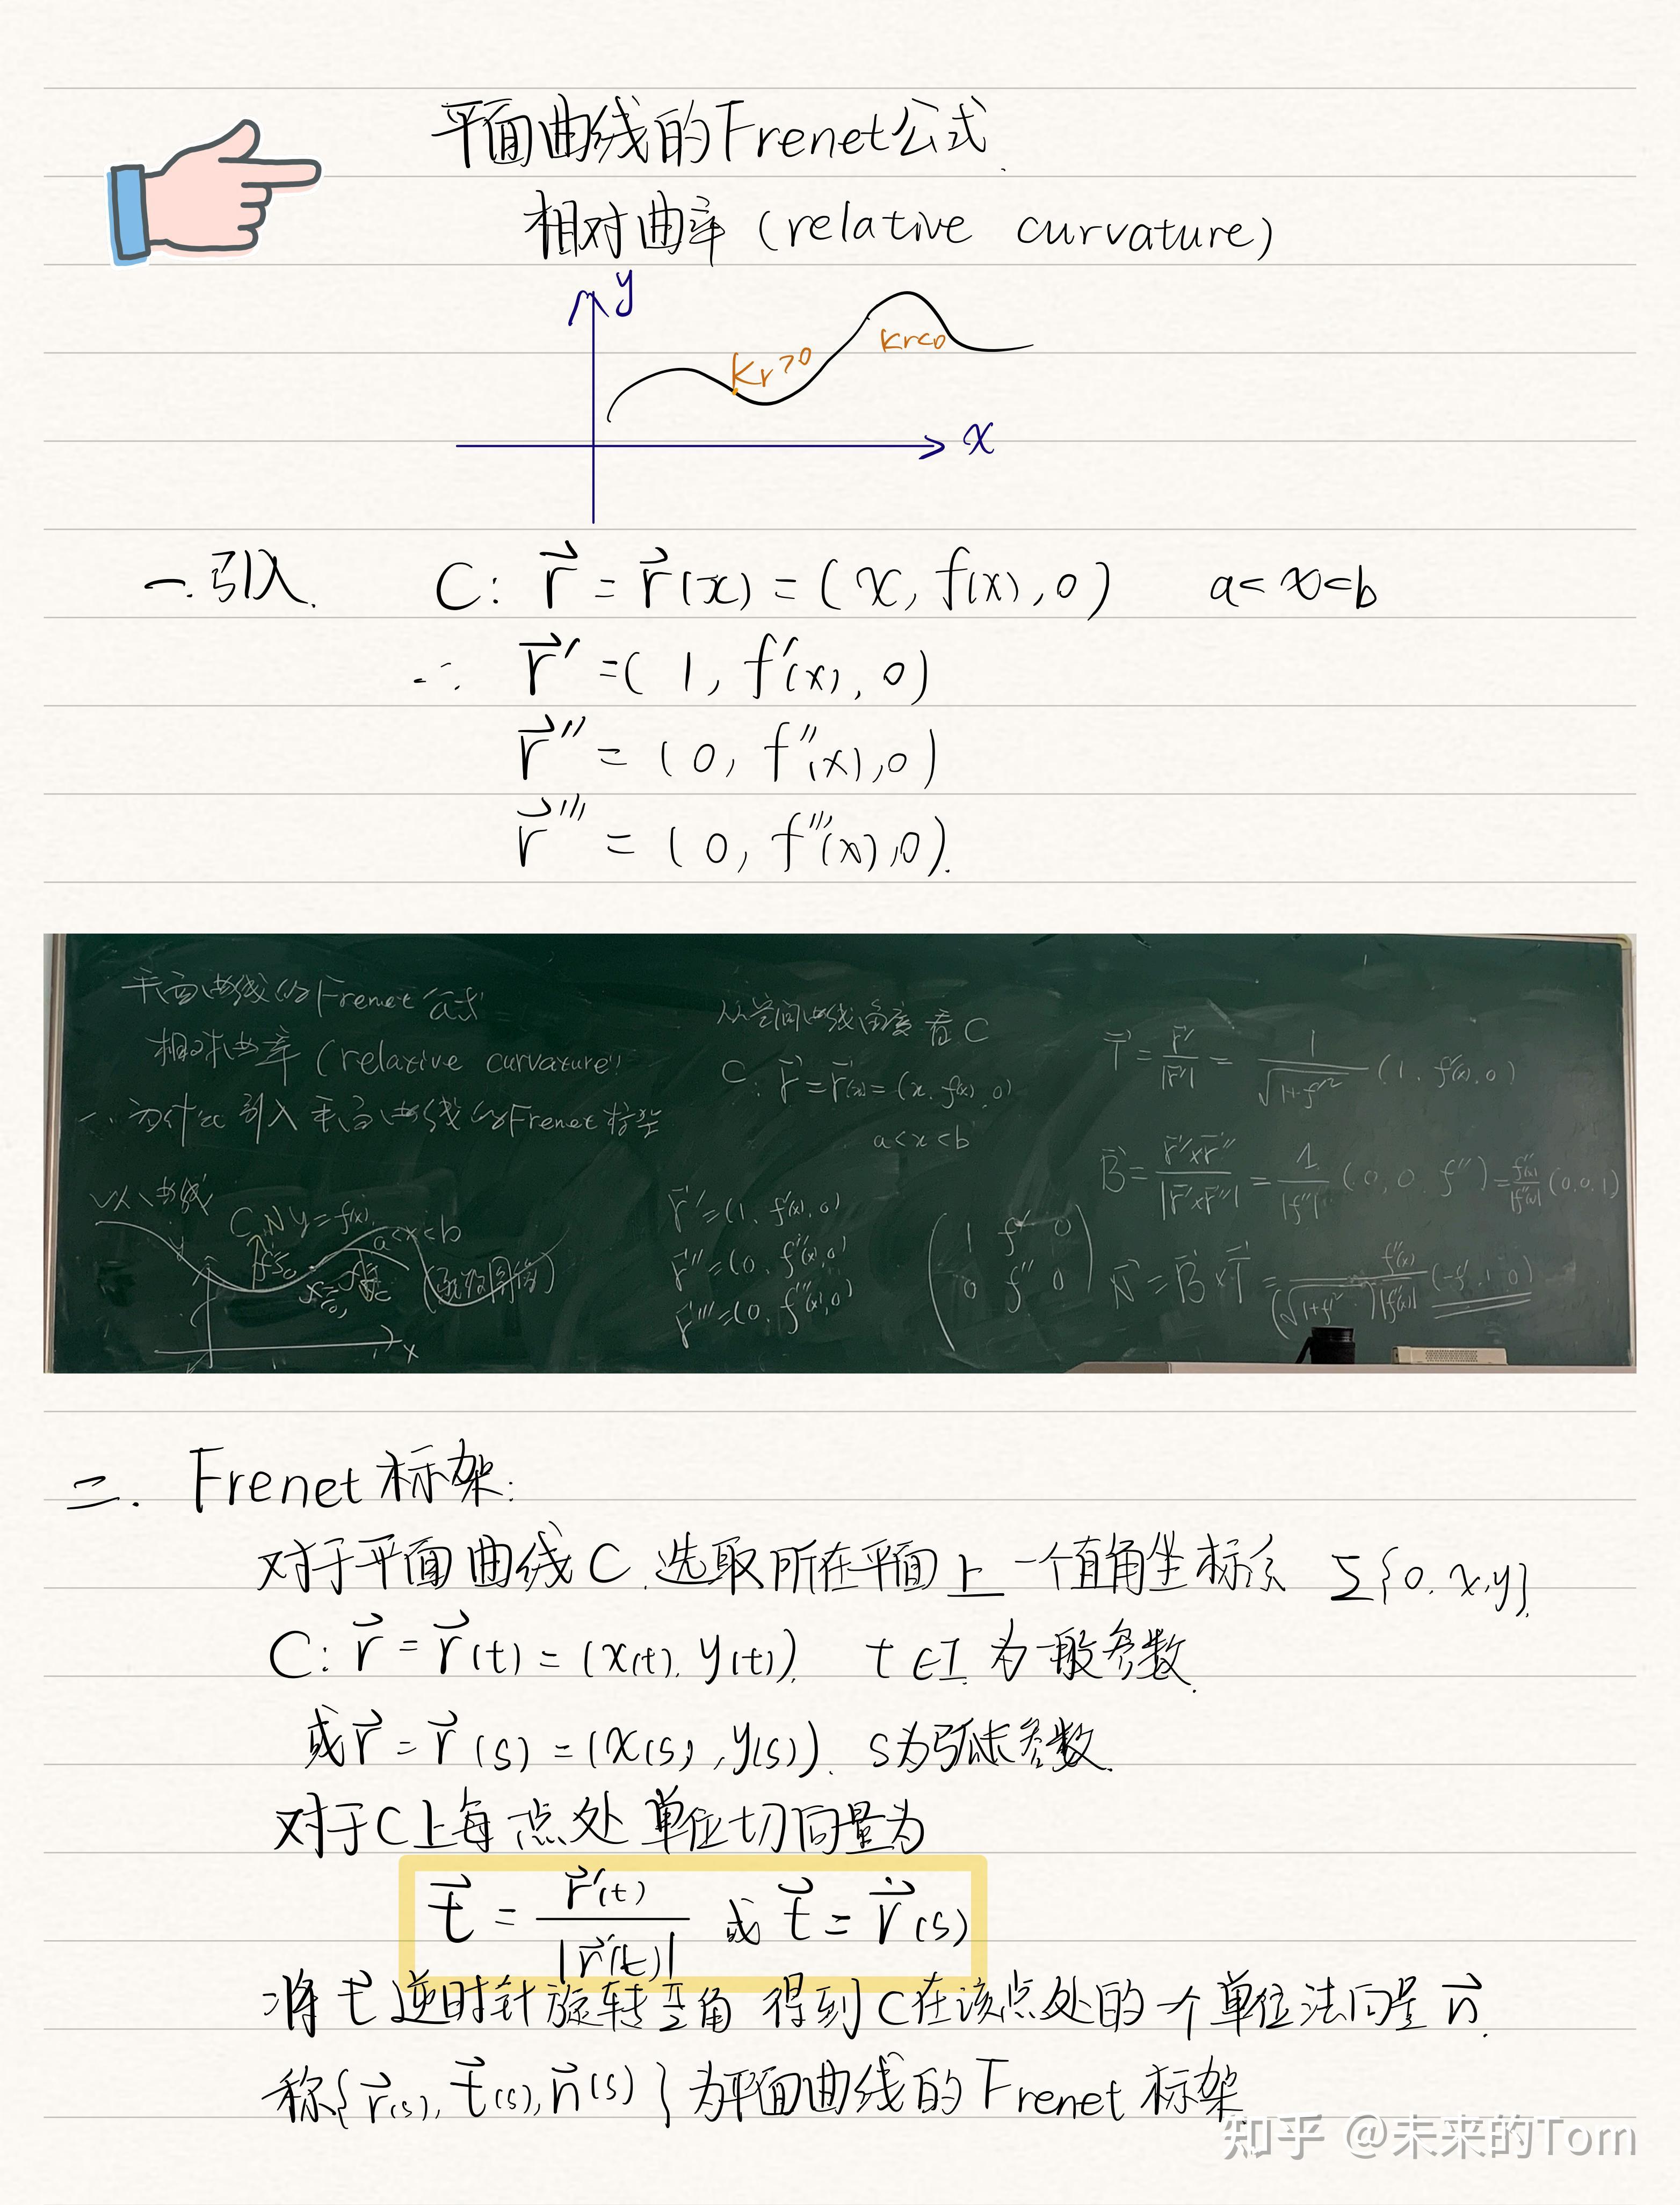 平面曲线的Frenet公式.
相对曲率 (relative curvature)
y
kr>0
kr<0
x
一.引入. C: r⃗ = r⃗(x) = (x, f(x), 0) a<x<b
∴ r⃗′ =( 1, f′(x), 0)
r⃗″ = (0, f″(x), 0)
r⃗‴ = (0, f‴(x), 0).
平面曲线的Frenet公式
相对曲率 (relative curvature)
一. 为什么引入平面曲线的Frenet标架
C: y=f(x)
a<x<b
x
从空间曲线角度看C
C: r⃗ = r⃗(x) = (x, f(x), 0)
a<x<b
r⃗′=(1, f′(x), 0)
r⃗″=(0, f″(x), 0)
r⃗‴=(0, f‴(x), 0)
(1 f′ 0
0 f″ 0)
T⃗ = r⃗′/|r⃗′| = 1/√(1+f′²) (1, f′(x), 0)
B⃗ = r⃗′×r⃗″/|r⃗′×r⃗″| = 1/|f″| (0, 0, f″) = f″(x)/|f″(x)| (0, 0, 1)
N⃗ = B⃗×T⃗ = f″(x)/(√(1+f′²))|f″(x)| (-f′, 1, 0)
二. Frenet 标架:
对于平面曲线C.选取所在平面上一个直角坐标系 Σ{0. x,y}.
C: r⃗ = r⃗(t) = (x(t), y(t)). t∈I 为一般参数.
或r⃗ = r⃗(s) = (x(s), y(s)). s为弧长参数.
对于C上每点处单位切向量为
t⃗ = r⃗′(t)/|r⃗′(t)| 或 t⃗ = r⃗̇(s)
将 t⃗ 逆时针旋转直角 得到C在该点处的一个单位法向量 n⃗.
称{r⃗(s), t⃗(s), n⃗(s)}为平面曲线的Frenet 标架.
知乎 @未来的Tom